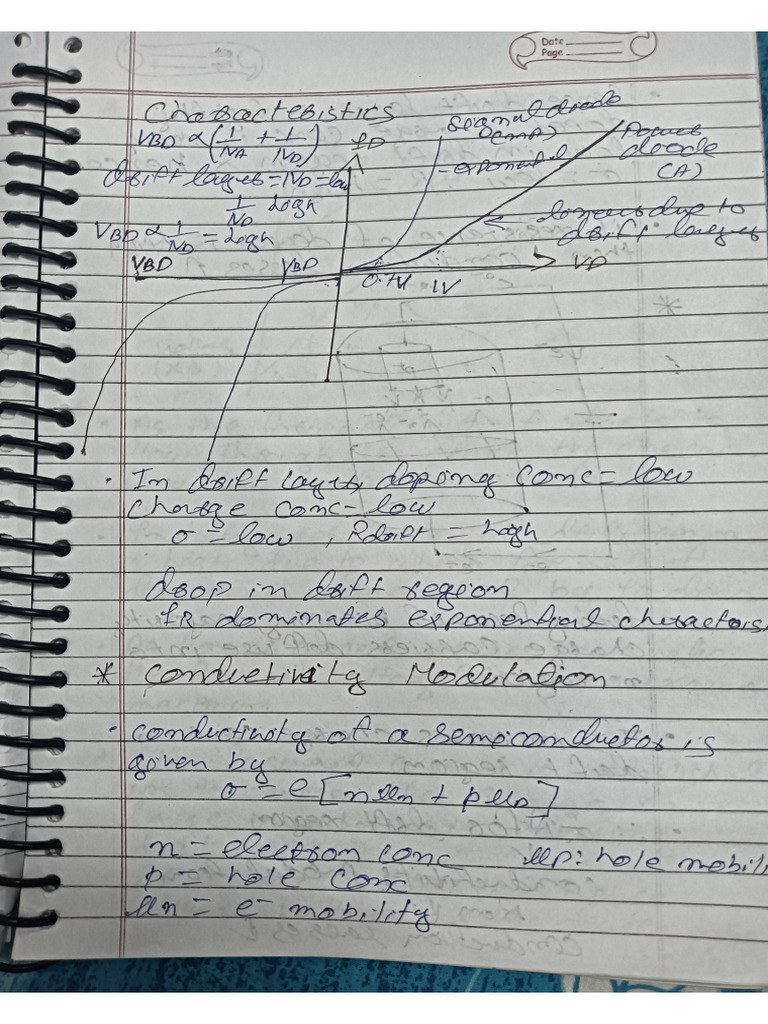 Date
Page
Characteristics
VBD ∝ (1/NA + 1/ND)
ID
signal diode
(mA)
exponential
Power
diode
(A)
drift layer = ND = low
1/ND high
VBD ∝ 1/ND = high
linear due to
drift layer
VBD VBD 0.7V 1V VD
· In drift layer, doping conc = low
charge conc = low
σ = low , Rdrift = high
drop in drift region
IR dominates exponential characteris
* Conductivity Modulation
· conductivity of a semiconductor is
given by
σ = e [nμn + pμp]
n = electron conc μp: hole mobili
p = hole conc
μn = e⁻ mobility